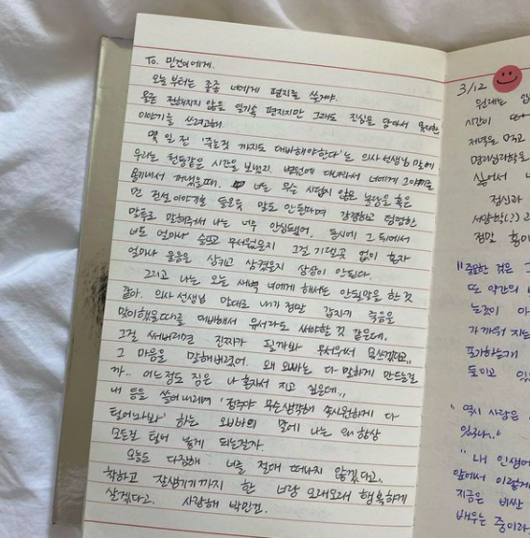 To. 민건이에게.
오늘부터는 종종 너에게 편지를 쓸거야.
물론 전해지지 않을 일기속 편지지만 그래도 진심을 담아서 솔직한
이야기를 쓰려고해
몇 일 전 '죽는것 까지도 대비해야한다'는 의사 선생님 말에
우리는 천둥같은 시간을 보냈지. 병원에 다녀와서 너에게 그이야기를
용기내서 꺼냈을때. 너는 무슨 시답지 않은 농담을 혹은
먼 전설 이야기를 들은듯 말도 안된다며 강경하고 덤덤한
말투로 말해줘서 나는 너무 안심됐어. 동시에 그 뒤에서
너도 얼마나 슬프고 무서웠을지 그걸 기댈곳 없이 혼자
얼마나 울음을 삼키고 삼켰을지 상상이 안된다.
그리고 나는 오늘 새벽 너에게 해서는 안될말을 한 것
같아. 의사 선생님 말대로 내가 정말 갑자기 죽음을
맞이했을때를 대비해서 유서라도 써야할 것 같은데..
그걸 써버리면 진짜가 될까봐 무서워서 못쓰겠다고..
그 마음을 말해버렸어. 왜 오빠는 다 말하게 만드는걸
까.. 어느정도 짐은 나 혼자서 지고 싶은데..
내 등을 쓸어내리며 '정주야 무슨생각해 속시원하게 다
털어놔봐' 하는 오빠의 말에 나는 왜 항상
모든걸 털어 놓게 되는걸까.
오늘도 다짐해 너를 절대 떠나지 않겠다고.
착하고 잘생기기까지 한 너랑 오래오래 행복하게
살겠다고. 사랑해 박민건.
3/12
원래는
시간이
저녁을 먹고
싶어서
정신과
정말
"중요한 것은
또 약간의
는것이
가까워 지는
포기하는기
"역시 사랑은
있구나.."
"내 인생에
앞에서 이렇게
지금은 비싼
배우는 중이라